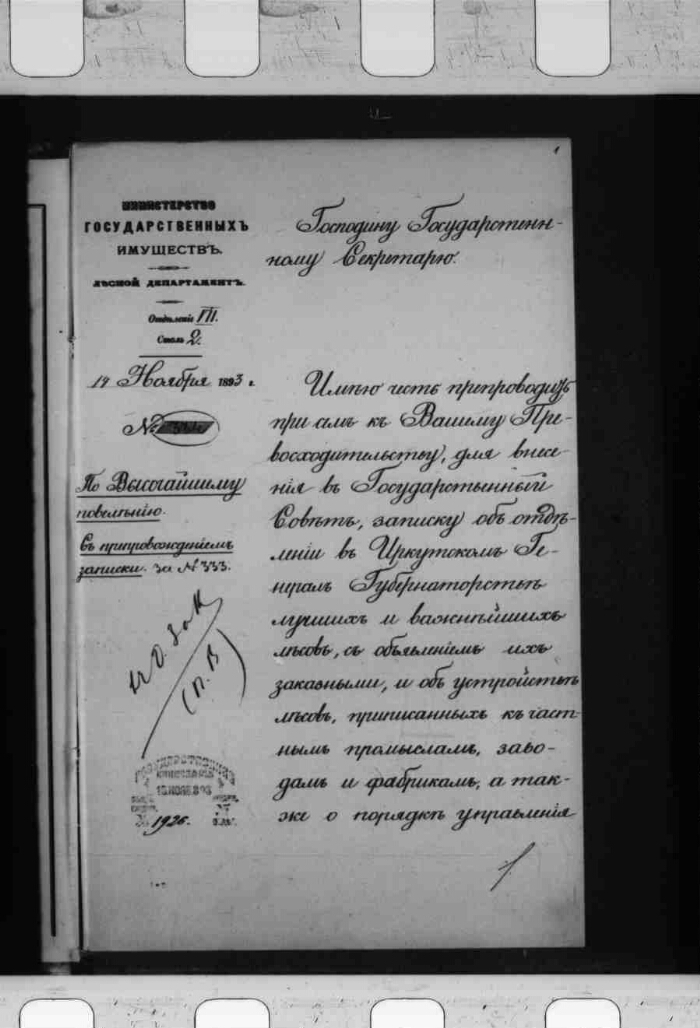 1
МИНИСТЕРСТВО
ГОСУДАРСТВЕННЫХЪ
ИМУЩЕСТВЪ.
ЛѢСНОЙ ДЕПАРТАМЕНТЪ.
Отдѣленіе VII.
Столъ 2.
Ноября 1893 г.
№
По Высочайшему
повелѣнію.
Съ препровожденіемъ
записки за № 333.
Господину Государствен-
ному Секретарю.
Имѣю честь препроводить
при семъ къ Вашему Пре-
восходительству, для внесе-
нія въ Государственный
Совѣтъ, записку объ отдѣ-
леніи въ Иркутскомъ Ге-
нералъ Губернаторствѣ
лучшихъ и важнѣйшихъ
лѣсовъ, съ объявленіемъ ихъ
заказными, и объ устройствѣ
лѣсовъ, приписанныхъ къ част-
нымъ промысламъ, заво-
дамъ и фабрикамъ, а так-
же о порядкѣ управленія
(П. В)
ГОСУДАРСТВЕН
КАНЦЕЛЯРІЯ
1926.